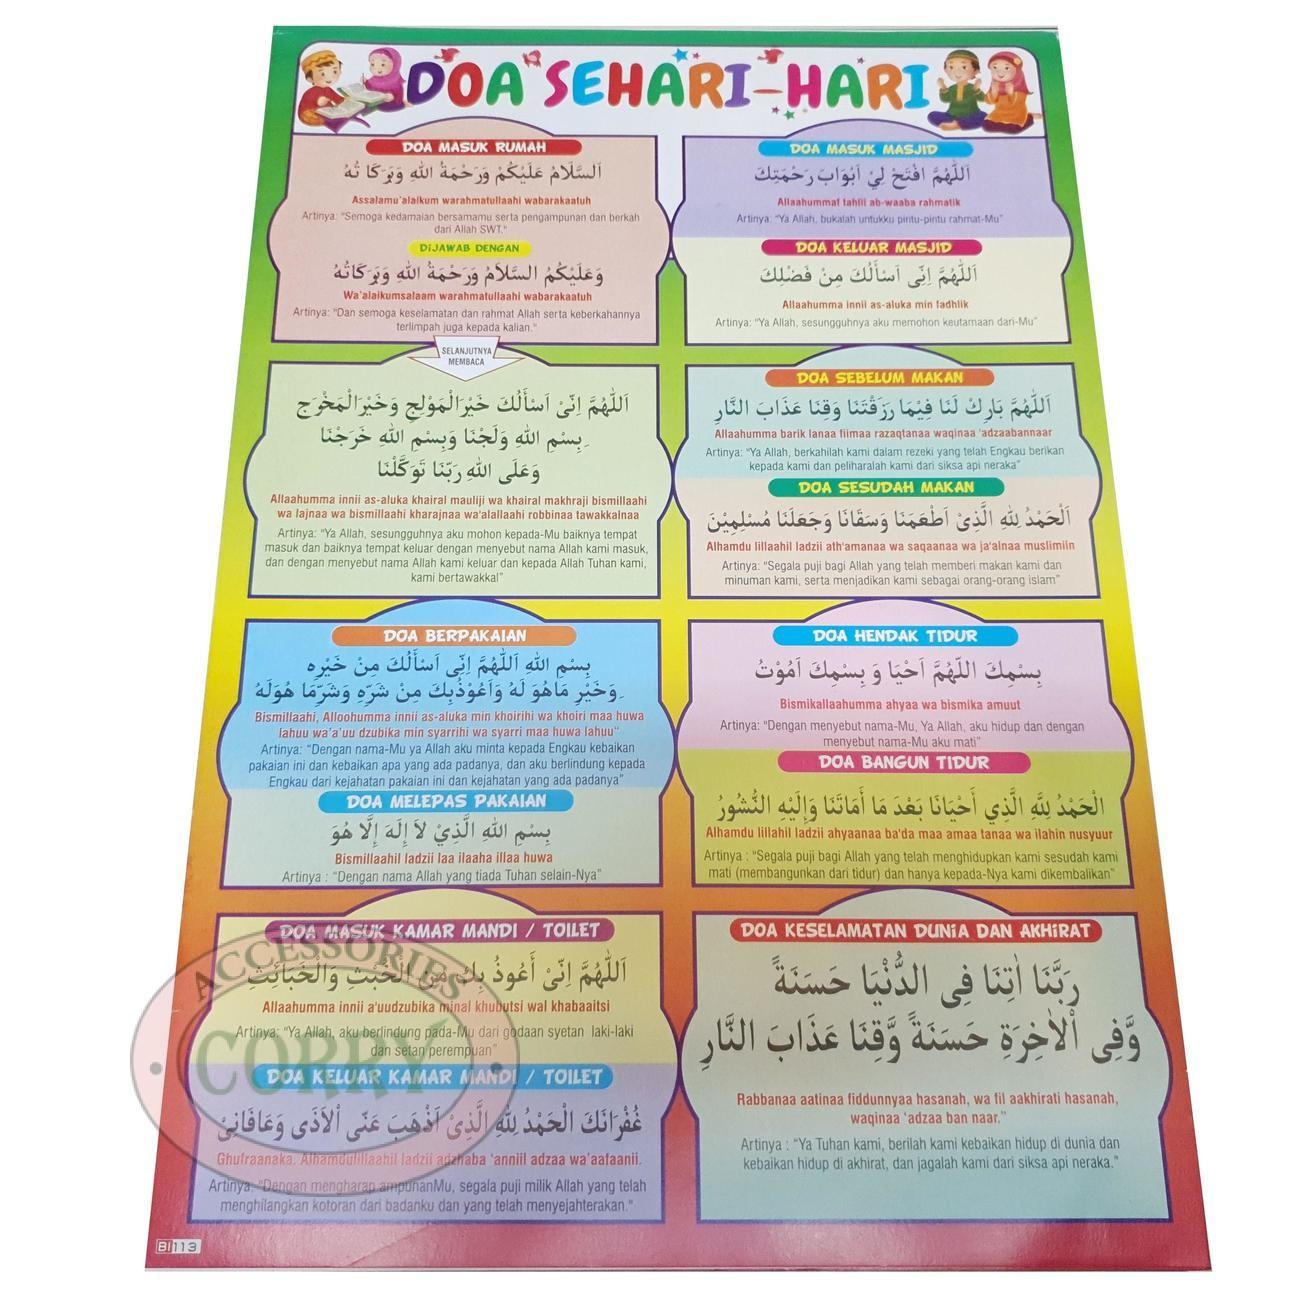 DOA SEHARI-HARI
DOA MASUK RUMAH
اَلسَّلَامُ عَلَيْكُمْ وَرَحْمَةُ اللهِ وَبَرَكَا تُهُ
Assalamu'alaikum warahmatullaahi wabarakaatuh
Artinya: "Semoga kedamaian bersamamu serta pengampunan dan berkah
dari Allah SWT."
DIJAWAB DENGAN
وَعَلَيْكُمُ السَّلاَمُ وَرَحْمَةُ اللهِ وَبَرَكَاتُهُ
Wa'alaikumsalaam warahmatullaahi wabarakaatuh
Artinya: "Dan semoga keselamatan dan rahmat Allah serta keberkahannya
terlimpah juga kepada kalian."
SELANJUTNYA
MEMBACA
اَللّٰهُمَّ اِنِّىْ اَسْأَلُكَ خَيْرَالْمَوْلِجِ وَخَيْرَالْمَخْرَجِ
بِسْمِ اللهِ وَلَجْنَا وَبِسْمِ اللهِ خَرَجْنَا
وَعَلَى اللهِ رَبِّنَا تَوَكَّلْنَا
Allaahumma innii as-aluka khairal mauliji wa khairal makhraji bismillaahi
wa lajnaa wa bismillaahi kharajnaa wa'alallaahi robbinaa tawakkalnaa
Artinya: "Ya Allah, sesungguhnya aku mohon kepada-Mu baiknya tempat
masuk dan baiknya tempat keluar dengan menyebut nama Allah kami masuk,
dan dengan menyebut nama Allah kami keluar dan kepada Allah Tuhan kami,
kami bertawakkal"
DOA BERPAKAIAN
بِسْمِ اللهِ اَللّٰهُمَّ اِنِّى اَسْأَلُكَ مِنْ خَيْرِهِ
وَخَيْرِ مَاهُوَ لَهُ وَاَعُوْذُبِكَ مِنْ شَرِّهِ وَشَرِّمَا هُوَلَهُ
Bismillaahi, Alloohumma innii as-aluka min khoirihi wa khoiri maa huwa
lahuu wa'a'uu dzubika min syarrihi wa syarri maa huwa lahuu"
Artinya: "Dengan nama-Mu ya Allah aku minta kepada Engkau kebaikan
pakaian ini dan kebaikan apa yang ada padanya, dan aku berlindung kepada
Engkau dari kejahatan pakaian ini dan kejahatan yang ada padanya"
DOA MELEPAS PAKAIAN
بِسْمِ اللهِ الَّذِيْ لاَ إِلَهَ إِلَّا هُوَ
Bismillaahil ladzii laa ilaaha illaa huwa
Artinya : "Dengan nama Allah yang tiada Tuhan selain-Nya"
DOA MASUK KAMAR MANDI / TOILET
اَللّٰهُمَّ اِنِّىْ أَعُوذُ بِكَ مِنَ الْخُبُثِ وَالْخَبَائِثِ
Allaahumma innii a'uudzubika minal khubutsi wal khabaaitsi
Artinya: "Ya Allah, aku berlindung pada-Mu dari godaan syetan laki-laki
dan setan perempuan"
DOA KELUAR KAMAR MANDI / TOILET
غُفْرَانَكَ الْحَمْدُ لِلّٰهِ الَّذِىْ اَذْهَبَ عَنِّى اْلاَذَى وَعَافَانِىْ
Ghufraanaka. Alhamdulillaahil ladzii adzhaba 'anniil adzaa wa'aafaanii.
Artinya: "Dengan mengharap ampunanMu, segala puji milik Allah yang telah
menghilangkan kotoran dari badanku dan yang telah menyejahterakan."
BI 113
DOA MASUK MASJID
اَللّٰهُمَّ افْتَحْ لِيْ اَبْوَابَ رَحْمَتِكَ
Allaahummaf tahlii ab-waaba rahmatik
Artinya: "Ya Allah, bukalah untukku pintu-pintu rahmat-Mu"
DOA KELUAR MASJID
اَللّٰهُمَّ اِنِّى اَسْأَلُكَ مِنْ فَضْلِكَ
Allaahumma innii as-aluka min fadhlik
Artinya: "Ya Allah, sesungguhnya aku memohon keutamaan dari-Mu"
DOA SEBELUM MAKAN
اَللّٰهُمَّ بَارِكْ لَنَا فِيْمَا رَزَقْتَنَا وَقِنَا عَذَابَ النَّارِ
Allaahumma barik lanaa fiimaa razaqtanaa waqinaa 'adzaabannaar
Artinya: "Ya Allah, berkahilah kami dalam rezeki yang telah Engkau berikan
kepada kami dan peliharalah kami dari siksa api neraka"
DOA SESUDAH MAKAN
اَلْحَمْدُ لِلّٰهِ الَّذِىْ اَطْعَمَنَا وَسَقَانَا وَجَعَلَنَا مُسْلِمِيْنَ
Alhamdu lillaahil ladzii ath'amanaa wa saqaanaa wa ja'alnaa muslimiin
Artinya: "Segala puji bagi Allah yang telah memberi makan kami dan
minuman kami, serta menjadikan kami sebagai orang-orang islam"
DOA HENDAK TIDUR
بِسْمِكَ اللّٰهُمَّ اَحْيَا وَ بِسْمِكَ اَمُوْتُ
Bismikallaahumma ahyaa wa bismika amuut
Artinya: "Dengan menyebut nama-Mu, Ya Allah, aku hidup dan dengan
menyebut nama-Mu aku mati"
DOA BANGUN TIDUR
الْحَمْدُ لِلَّهِ الَّذِي أَحْيَانَا بَعْدَ مَا أَمَاتَنَا وَإِلَيْهِ النُّشُورُ
Alhamdu lillahil ladzii ahyaanaa ba'da maa amaa tanaa wa ilahin nusyuur
Artinya : "Segala puji bagi Allah yang telah menghidupkan kami sesudah kami
mati (membangunkan dari tidur) dan hanya kepada-Nya kami dikembalikan"
DOA KESELAMATAN DUNIA DAN AKHIRAT
رَبَّنَا اٰتِنَا فِى الدُّنْيَا حَسَنَةً
وَّفِى اْلاٰخِرَةِ حَسَنَةً وَّقِنَا عَذَابَ النَّارِ
Rabbanaa aatinaa fiddunnyaa hasanah, wa fil aakhirati hasanah,
waqinaa 'adzaa ban naar."
Artinya : "Ya Tuhan kami, berilah kami kebaikan hidup di dunia dan
kebaikan hidup di akhirat, dan jagalah kami dari siksa api neraka."
ACCESSORIES
CORRY